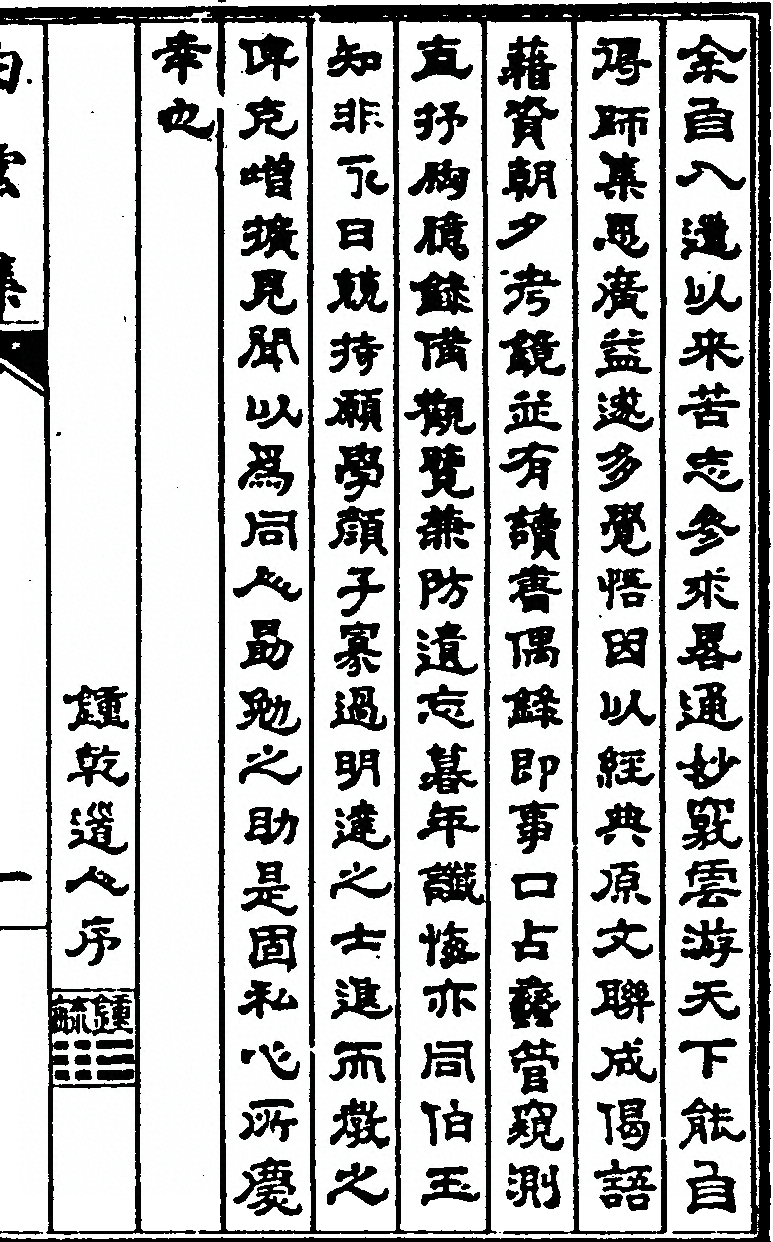 余自入道以来苦志參求畧通妙竅雲游天下能自
得師集思廣益遂多覺悟因以經典原文聯成偈語
藉資朝夕考鏡並有讀書偶錄即事口占蠡管窺測
直抒胸臆錄備觀覽兼防遺忘暮年讖悔亦同伯玉
知非永日兢持願學顏子寡過明達之士進而教之
俾克增擴見聞以爲同人勗勉之助是固私心所慶
幸也
鍾乾道人序
鍾毓
白雲集
一